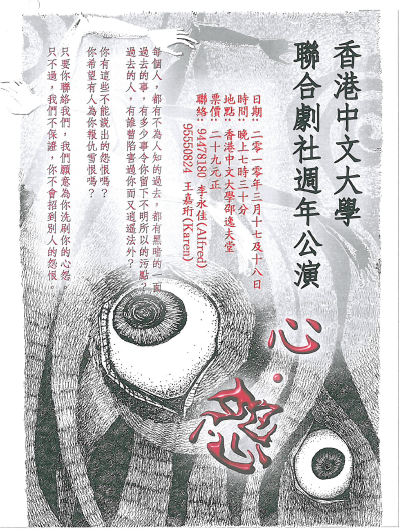 香港中文大學
聯合劇社週年公演
心·怨
日期：二零一零年三月十七及十八日
時間：晚上七時三十分
地點：香港中文大學邵逸夫堂
票價：二十九元正
聯絡：94478180 李永佳(Alfred)
95550824 王嘉珩(Karen)
每個人，都有不為人知的過去，都有黑暗的一面
過去的事，有多少事令你留下不明所以的污點？
過去的人，有誰曾陷害過你而又逍遙法外？
你有這些不能說出的怨恨嗎？
你希望有人為你報仇雪恨嗎？
只要你聯絡我們，我們願意為你洗刷你的心怨。
只不過，我們不保證，你不會招到別人的怨恨。